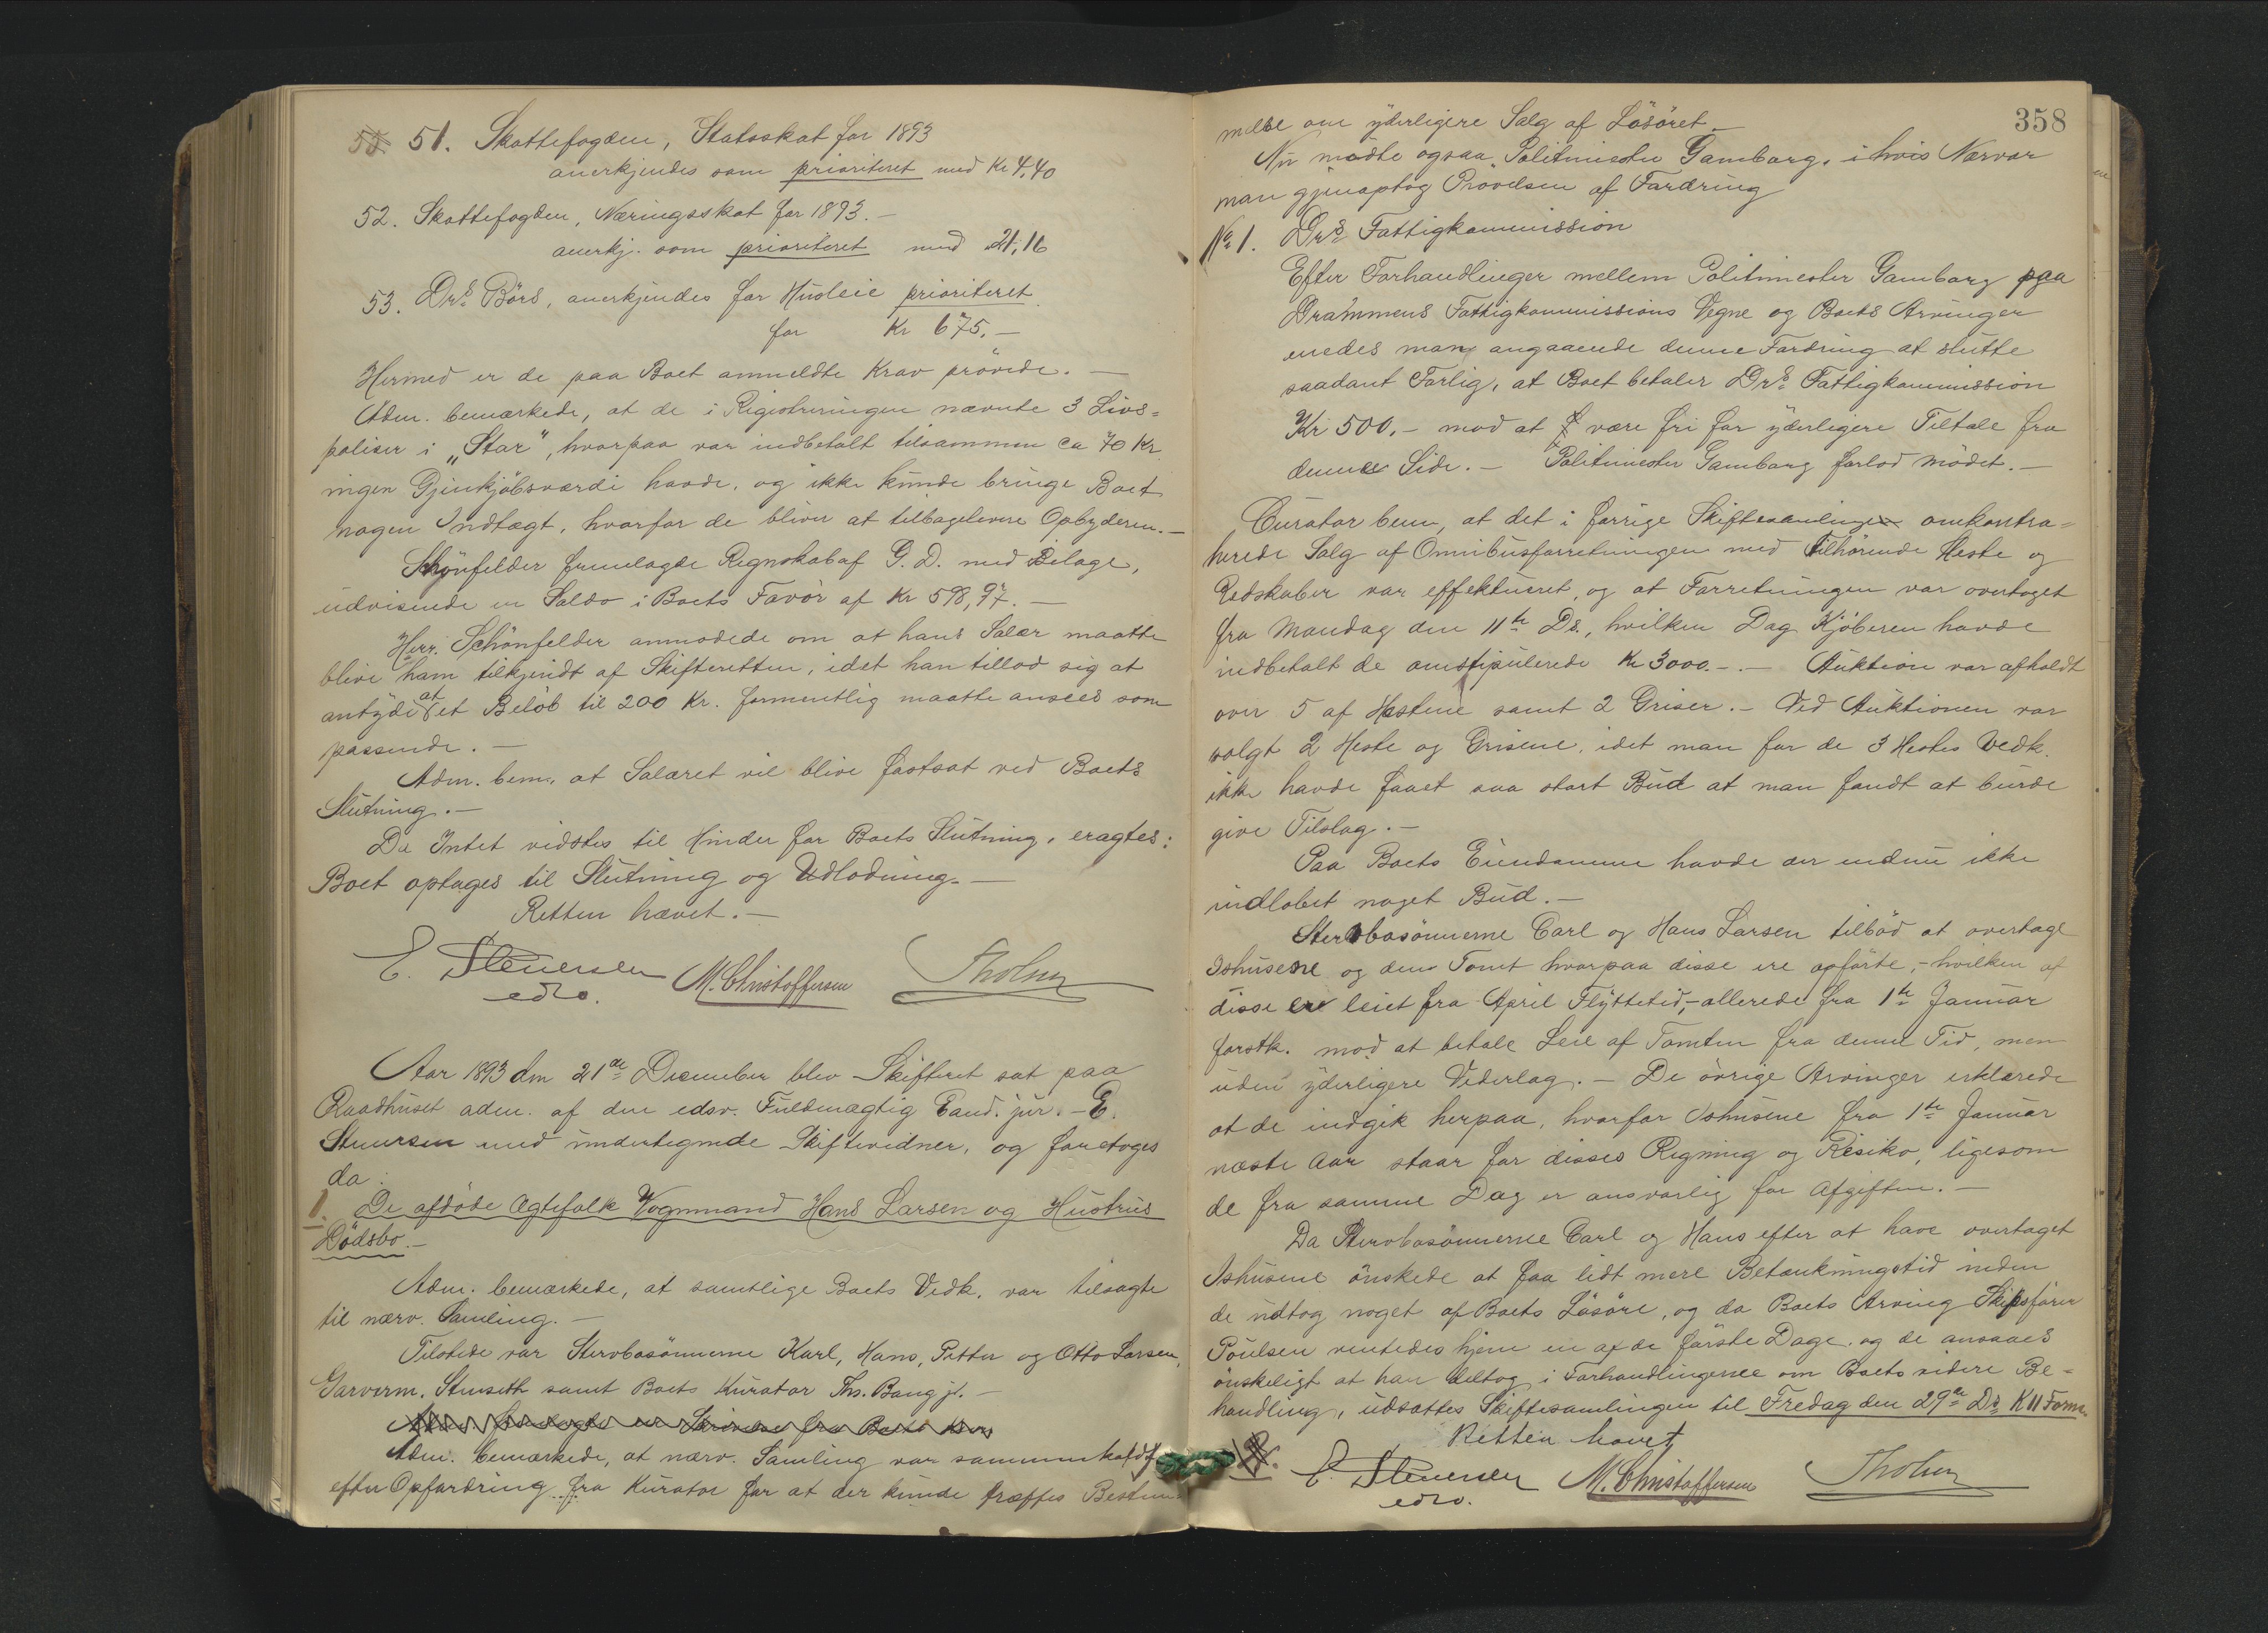 51. Skattefogden, Statsskat for 1893
anerkjendes som prioriteret med Kr 4,40
52. Skattefogden, Næringsskat for 1893.-
anerkj. som prioriteret med 21,16
53. Drs Börs, anerkjendes for Husleie prioriteret
for Kr 675.-
Hermed er de paa Boet anmeldte Krav prövede. -
Adm. bemærkede, at de i Registreringen nævnte 3 Livs=
poliser i „Star", hvorpaa var indbetalt tilsammen ca 70 Kr.
ingen Gjenkjöbsværdi havde, og ikke kunde bringe Boet
nogen Indtægt, hvorfor de bliver at tilbagelevere Opbyderen. -
Schönfelder fremlagde Regnskab af G. D. med Bilage,
udvisende en Saldo i Boets Favör af Kr 598,97. -
Herr Schönfelder anmodede om at hans Salær maatte
blive ham tilkjendt af Skifteretten, idet han tillod sig at
antyde at et Belöb til 200 Kr. formentlig maatte ansees som
passende. -
Adm. bem. at Salæret vil blive fastsat ved Boets
Slutning. -
Da Intet vidstes til Hinder for Boets Slutning, eragtes:
Boet optages til Slutning og Udlodning. -
Retten hævet. -
E. Stenersen M. Christoffersen Tholm
edsv.
Aar 1893 den 21de December blev Skifteret sat paa
Raadhuset adm. af den edsv. Fuldmægtig Cand. jur. - E.
Stenersen med undertegnede Skiftevidner, og foretoges
da:
1. De afdöde Ægtefolk Vognmand Hans Larsen og Hustrus
Dödsbo. -
Adm. bemærkede, at samtlige Boets Vedk. var tilsagte
til nærv. Samling. -
Tilstede var Stervbosönnerne Karl, Hans, Petter og Otto Larsen,
Garverm. Stenseth samt Boets Kurator Th. Bang jr. -
Adm. fremlagde en Skrivelse fra Boets Kur.
Adm. bemærkede, at nærv. Samling var sammenkaldt
efter Opfordring fra Kurator for at der kunde træffes Bestem=
358
melse om yderligere Salg af Lösöret. -
Nu mødte ogsaa Politimester Gamborg, i hvis Nærvær
man gjenoptog Prövelsen af Fordring
No 1. Drs Fattigkommission
Efter Forhandlinger mellem Politimester Gamborg paa
Drammens Fattigkommissions Vegne og Boets Arvinger
enedes man angaaende denne Fordring at slutte
saadant Forlig, at Boet betaler Drs Fattigkommission
Kr 500.- mod at være fri for yderligere Tiltale fra
denne Side. - Politimester Gamborg forlod mödet. -
Curator bem, at det i forrige Skiftesamling omkontra=
herede Salg af Omnibusforretningen med tilhörende Heste og
Redskaber var effektueret, og at Forretningen var overtaget
fra Mandag den 11te Ds., hvilken Dag Kjöberen havde
indbetalt de omstipulerede Kr 3000.-. - Auktion var afholdt
over 5 af Hestene samt 2 Griser. - Ved Auktionen var
solgt 2 Heste og Grisene, idet man for de 3 Hestes Vedk.
ikke havde faaet saa stort Bud at man fandt at burde
give Tilslag. -
Paa Boets Eiendomme havde der endnu ikke
indlobet noget Bud. -
Stervbosönnerne Carl og Hans Larsen tilböd at overtage
Ishusene og den Tomt hvorpaa disse ere opförte, - hvilken af
disse er leiet fra April Flyttetid, - allerede fra 1te Januar
forstk. mod at betale Leie af Tomten fra denne Tid, men
uden yderligere Vederlag. - De övrige Arvinger erklærede
at de indgik herpaa, hvorfor Ishusene fra 1te Januar
næste Aar staar for disses Regning og Risiko, ligesom
de fra samme Dag er ansvarlig for Afgiften. -
Da Stervbosönnerne Carl og Hans efter at have overtaget
Ishusene önskede at faa lidt mere Betænkningstid inden
de udtog noget af Boets Lösöre, og da Boets Arving Skibsförer
Poulsen ventedes hjem en af de förste Dage, og de ansaaes
önskeligt at han deltog i Forhandlingerne om Boets videre Be=
handling, udsattes Skiftesamlingen til Fredag den 29de Ds K 11 Form.
Retten hævet
E. Stenersen M. Christoffersen Tholm
edsv.